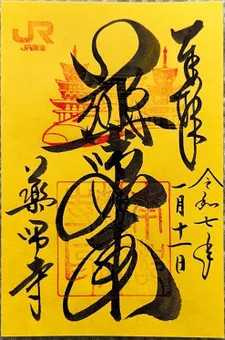 奉拝
令和七年
一月十一日
薬師如来
薬師寺
JR
JR東海